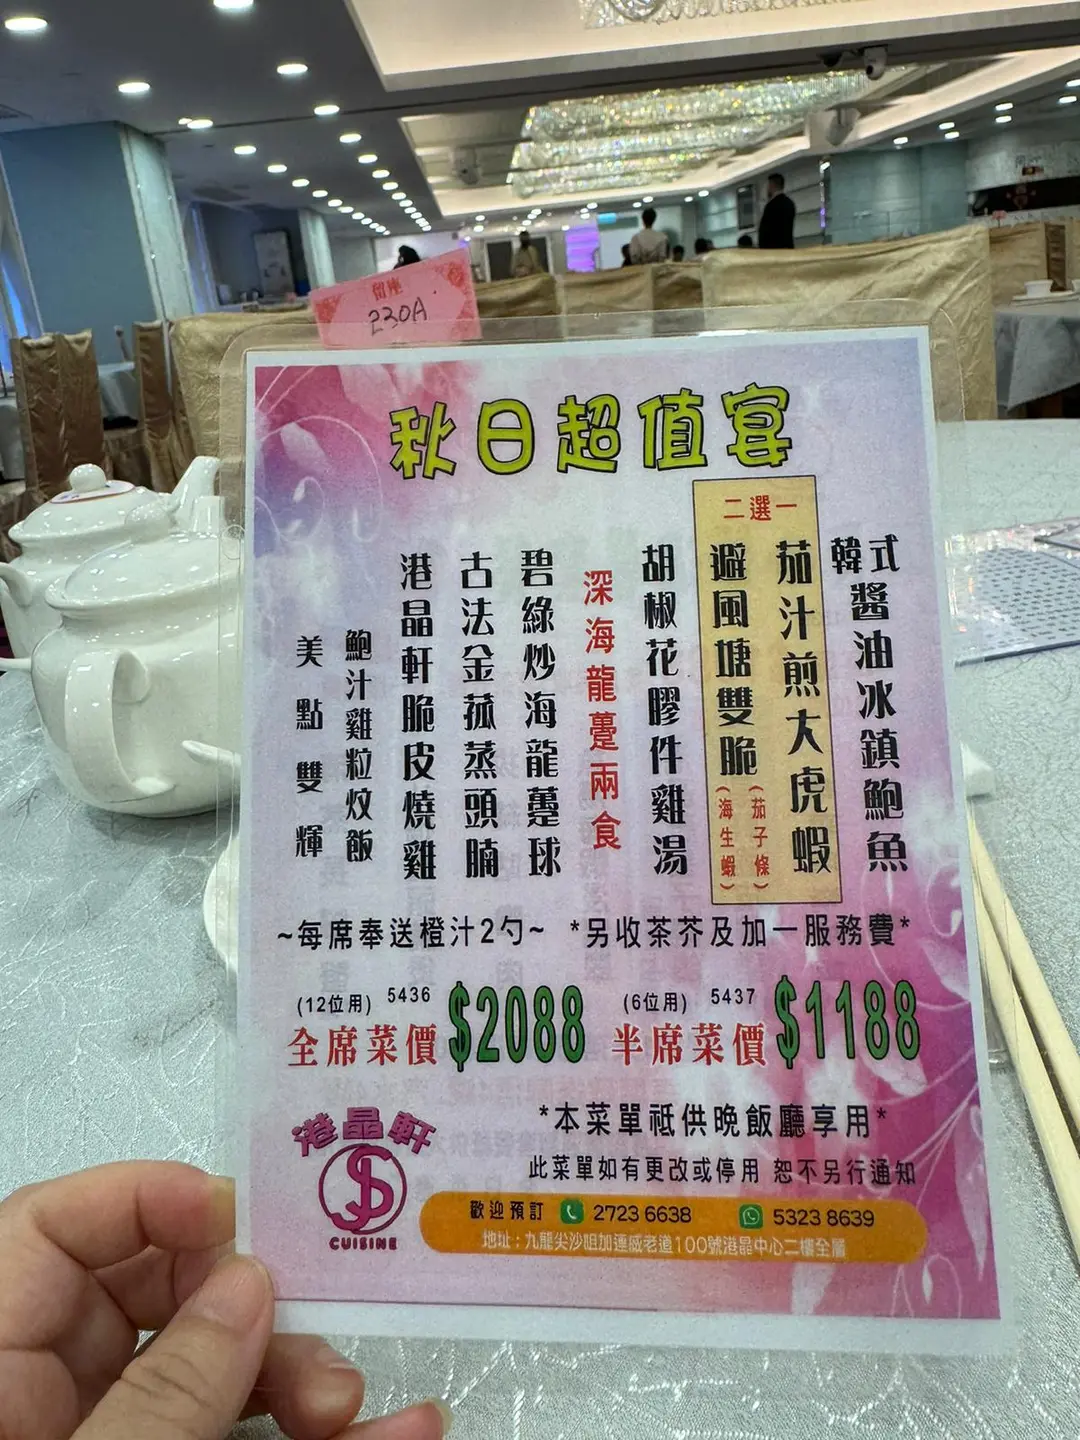 留座
230A
秋日超值宴
韓式醬油冰鎮鮑魚
二選一
茄汁煎大虎蝦
避風塘雙脆
(茄子條)
(海生蝦)
胡椒花膠件雞湯
深海龍躉兩食
碧綠炒海龍躉球
古法金菰蒸頭腩
港晶軒脆皮燒雞
鮑汁雞粒炆飯
美點雙輝
~每席奉送橙汁2勺~ *另收茶芥及加一服務費*
(12位用) 5436
全席菜價 $2088
(6位用) 5437
半席菜價 $1188
港晶軒
CUISINE
*本菜單祗供晚飯廳享用*
此菜單如有更改或停用 恕不另行通知
歡迎預訂 2723 6638 5323 8639
地址：九龍尖沙咀加連威老道100號港晶中心二樓全層